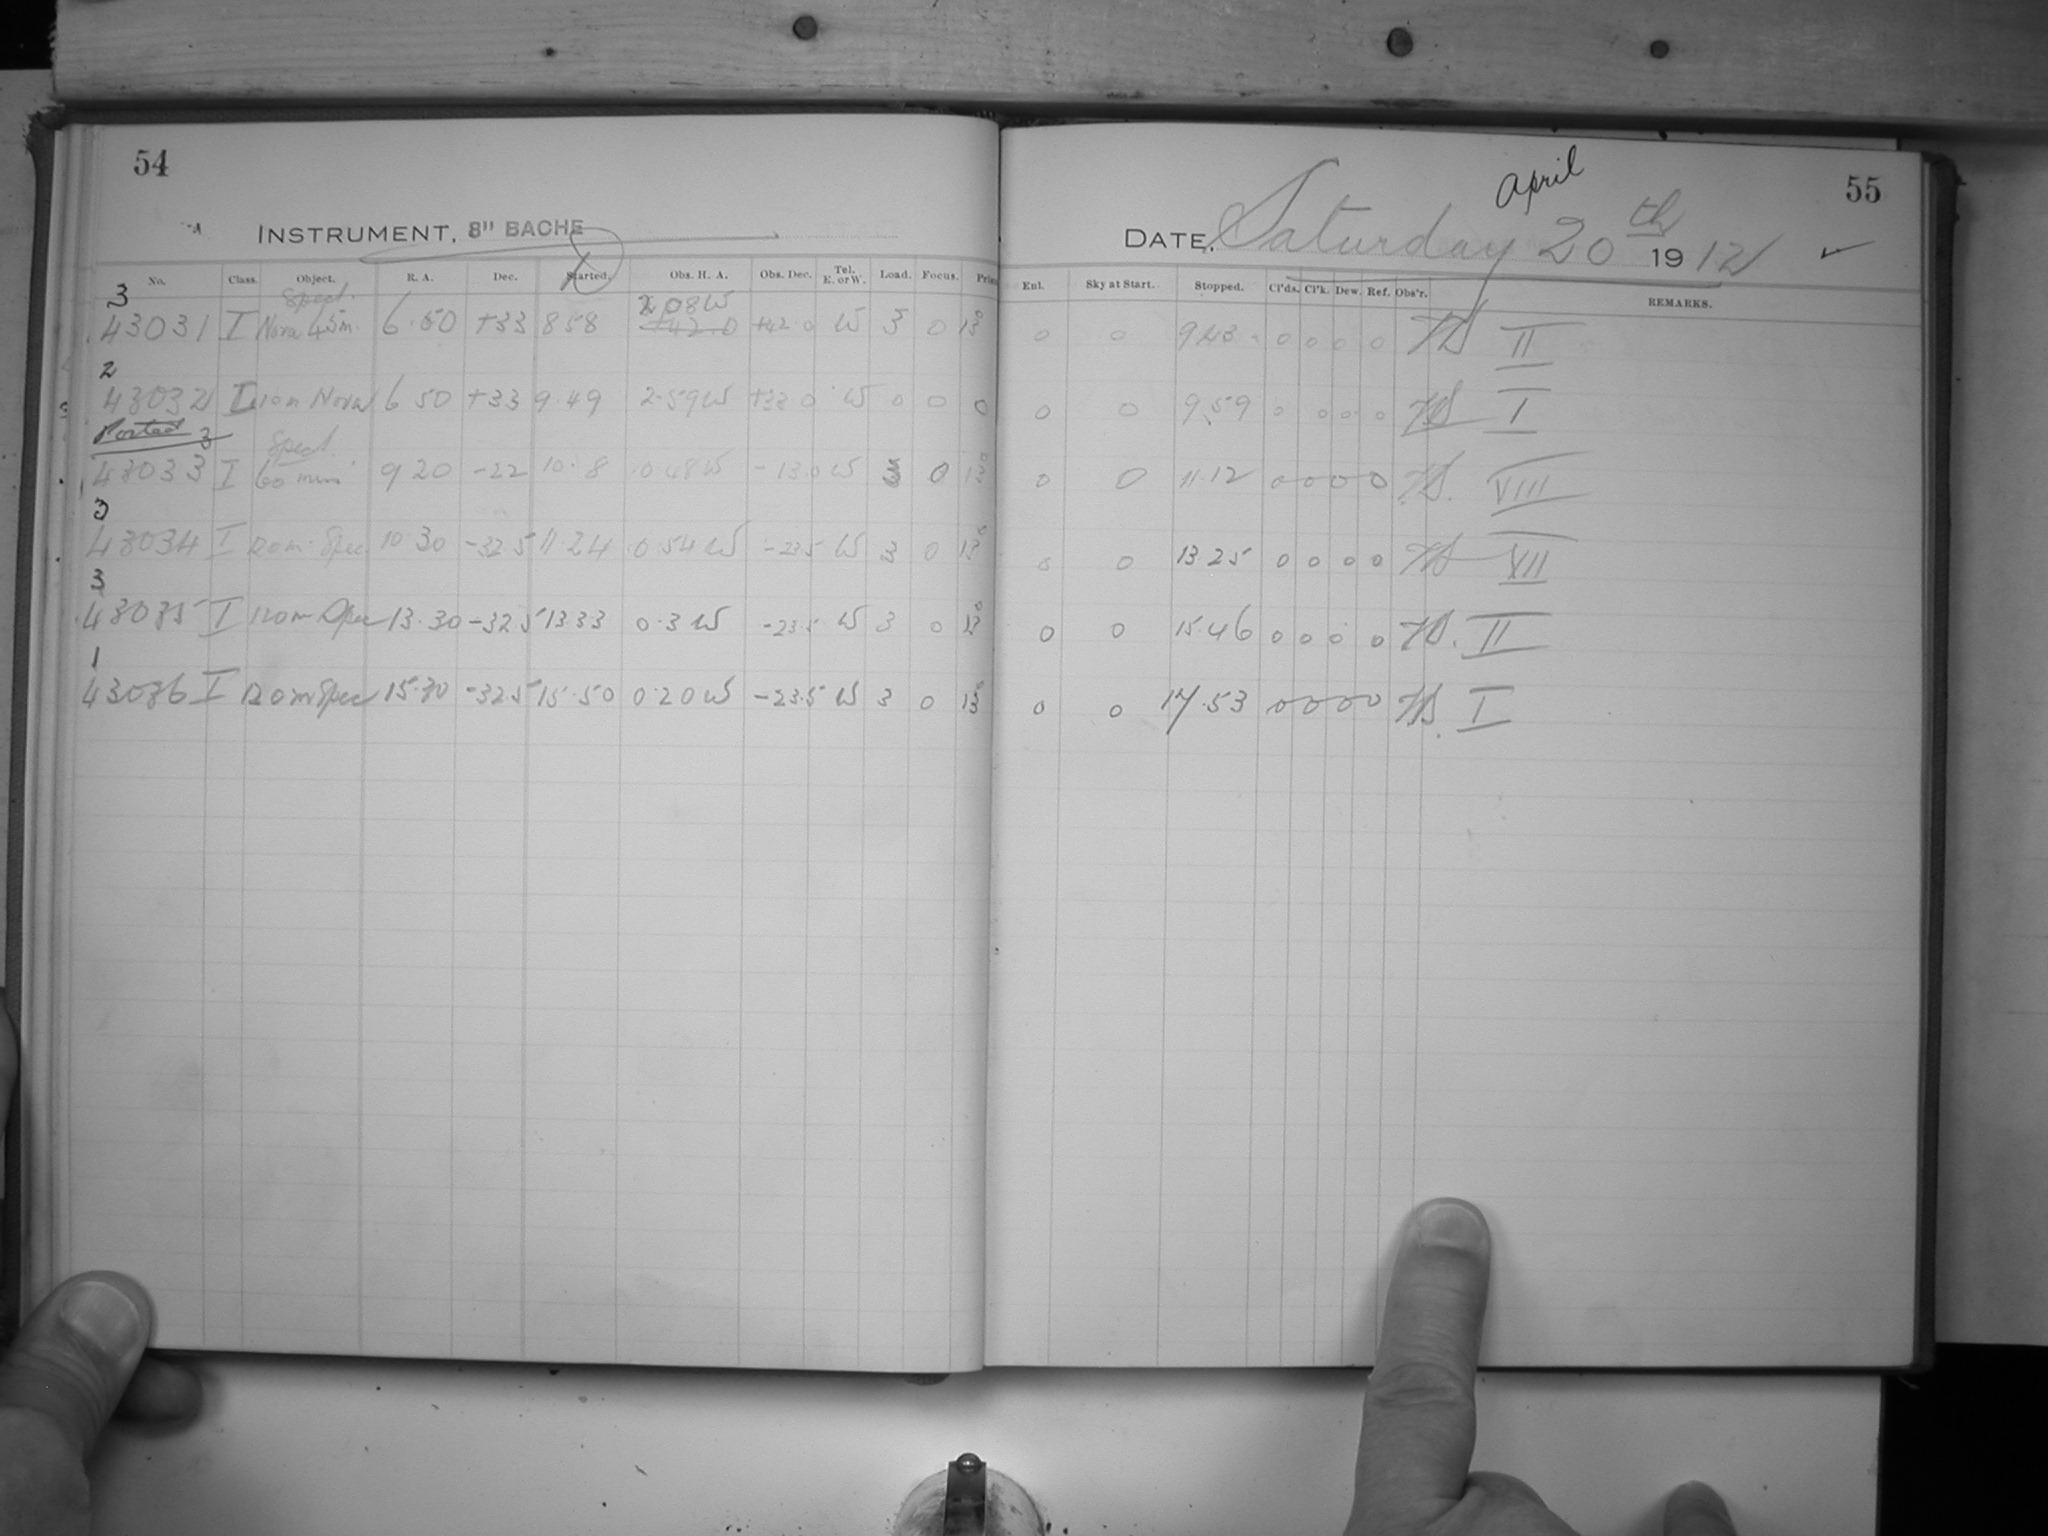 54
INSTRUMENT, 8" BACHE
No. Class. Object. R. A. Dec. Started. Obs. H. A. Obs. Dec. Tel. E. or W. Load. Focus.
3 Spect. 2 08 W
43031 I Nova 45m. 6.50 +33 8 58 +42.0 +42.0 W 3 0 13
2
43032 I 10m Nova 6 50 +33 9.49 2.59 W +33 0 W 0 0 0
Posted 3 Spect.
43033 I 60 min 9 20 -22 10.8 0.48 W -13.0 W 3 0 13
3
43034 I 120m. Spec 10 30 -32.5 11.24 0.54 W -23.5 W 3 0 13
3
43035 I 120m Spec 13.30 -32.5 13.33 0.3 W -23.5 W 3 0 13
1
43036 I 120m Spec 15.30 -32.5 15.50 0.20 W -23.5 W 3 0 13
55
April
DATE, Saturday 20th 1912
Enl. Sky at Start. Stopped. Cl'ds. Cl'k. Dew. Ref. Obs'r. REMARKS.
0 0 9.43 0 0 0 0 II
0 0 9.59 0 0 0 0 I
0 0 11.12 0 0 0 0 VIII
0 0 13.25 0 0 0 0 VII
0 0 15.46 0 0 0 0 II
0 0 17.53 0 0 0 0 I